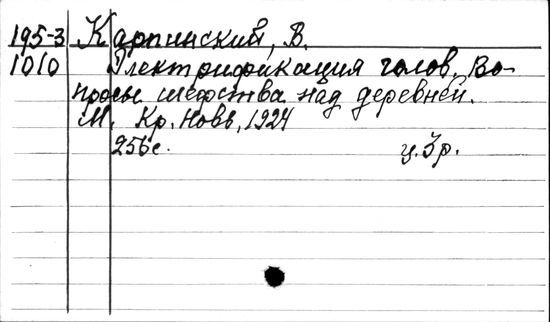 195-3 Карпинский, В.
1010 Электрификация голов. Во-
просы шефства над деревней.
М. Кр. Новь, 1924
256с. ц. 3р.